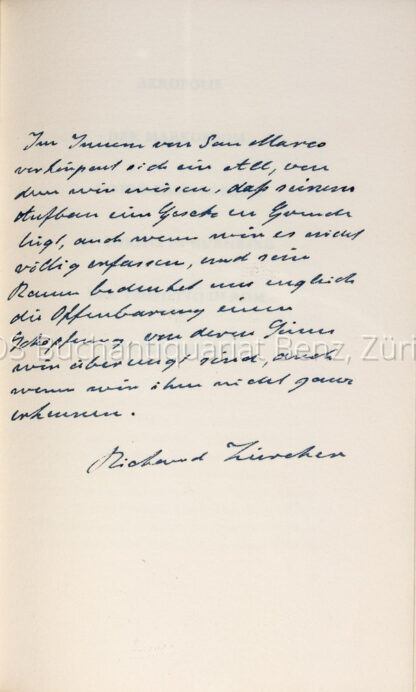 Im Innern von San Marco
verkörpert sich ein All, von
dem wir wissen, daß seinem
Aufbau ein Gesetz zu Grunde
liegt, auch wenn wir es nicht
völlig erfassen, und sein
Raum bedeutet uns zugleich
die Offenbarung einer
Schöpfung von deren Sinn
wir überzeugt sind, auch
wenn wir ihn nicht ganz
erkennen.
Richard Zürcher
Os Buchantiquariat Benz, Züri